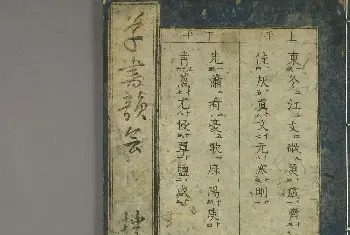 上平
東冬江支微魚虞齊
佳灰眞文元寒刪
下平
先蕭肴豪歌麻陽庚
青蒸尤侵覃鹽咸
草書韻會